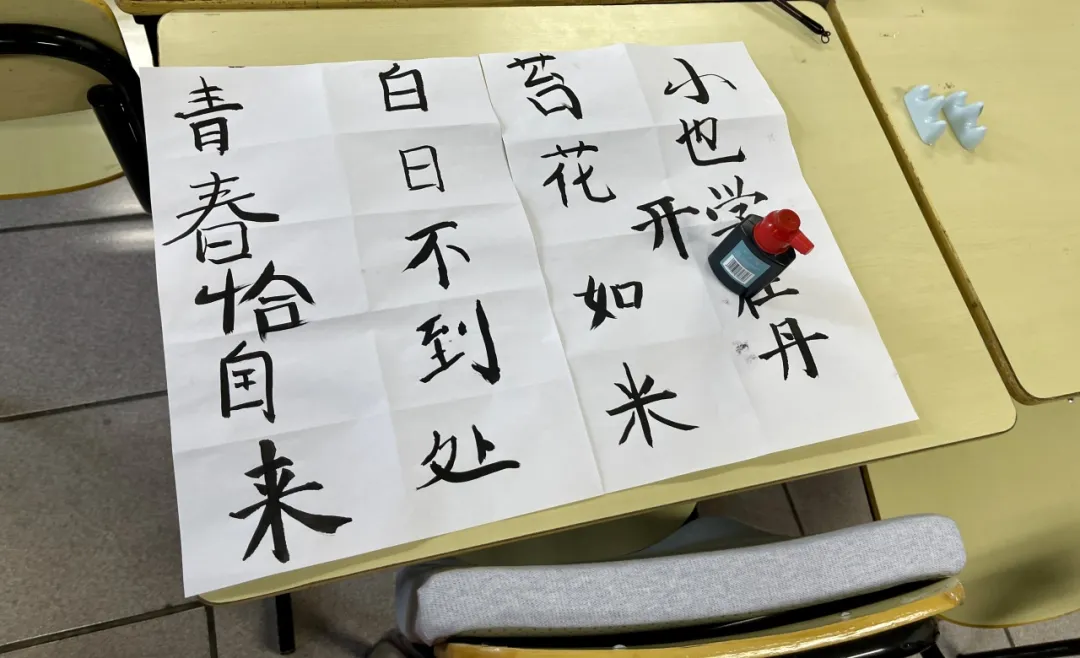 白日不到处
青春恰自来
苔花如米
小也学丹
开